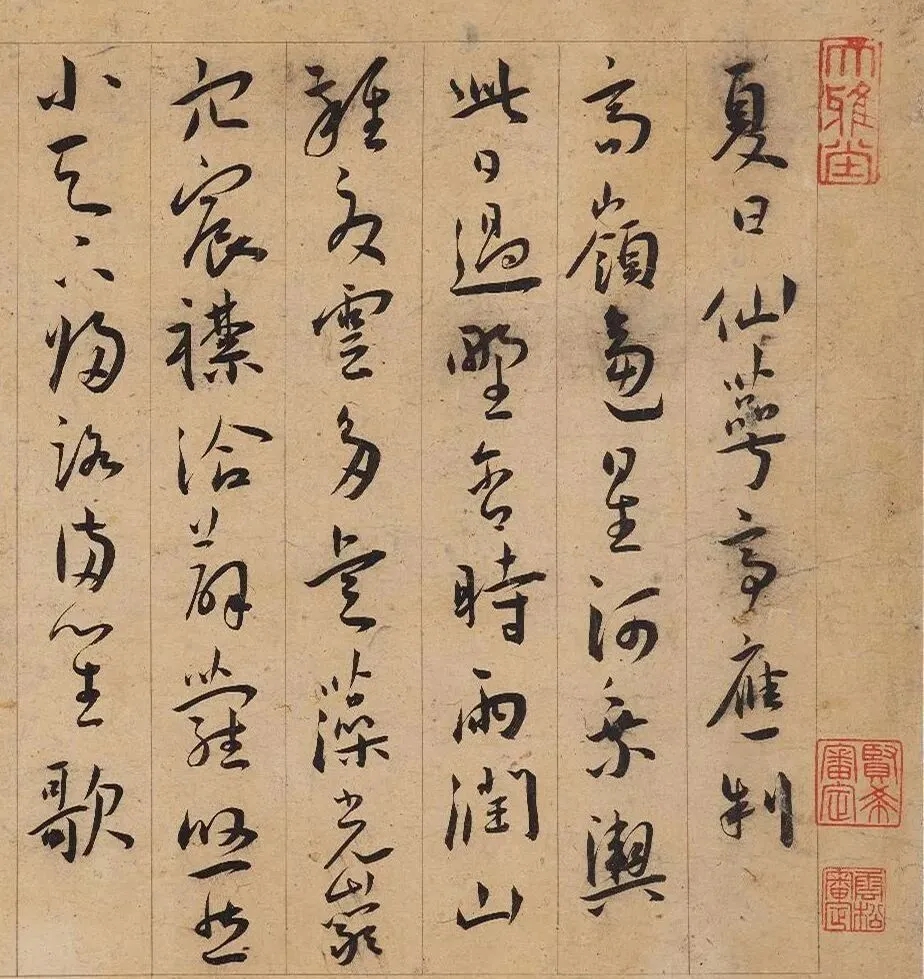 夏日仙萼亭應制
高嶺逼星河乘輿
此日過野含時雨潤山
雜夏雲多睿藻光巖
穴宸襟洽薜蘿悠然
小天下歸路滿笙歌
審定
審定